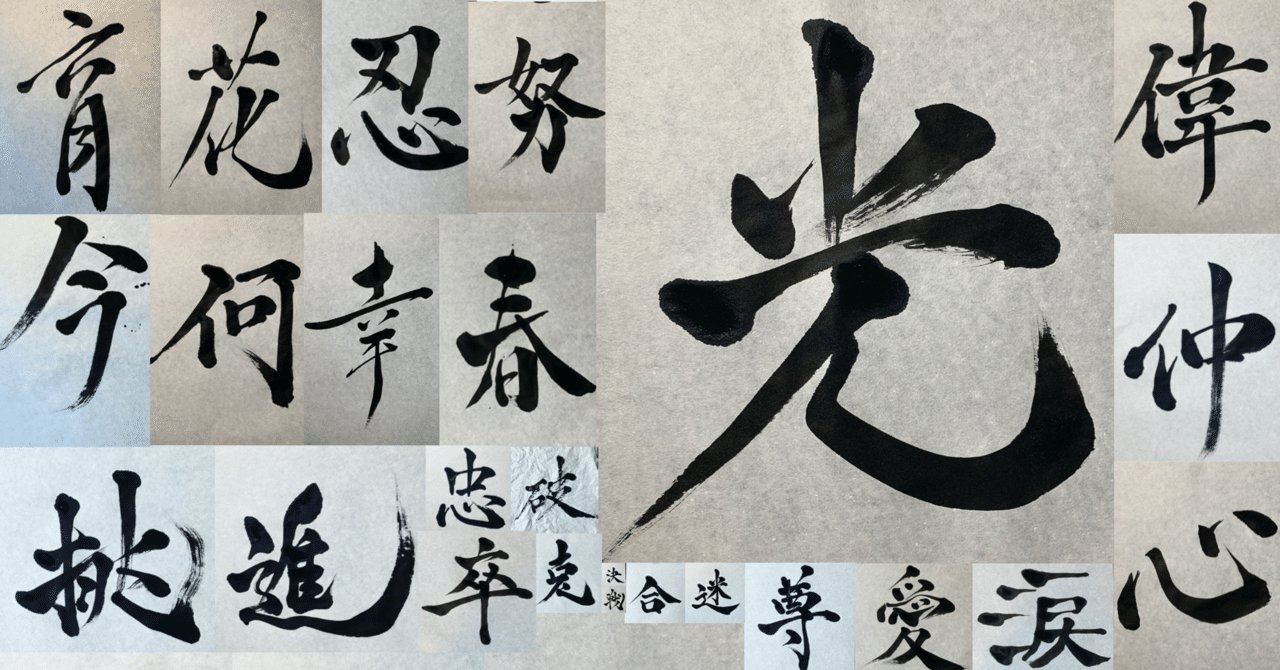 育 花 忍 努
今 何 幸 春
挑 進
忠 破
卒 克
決戦
合 迷
尊 愛 涙
光
偉
仲
心